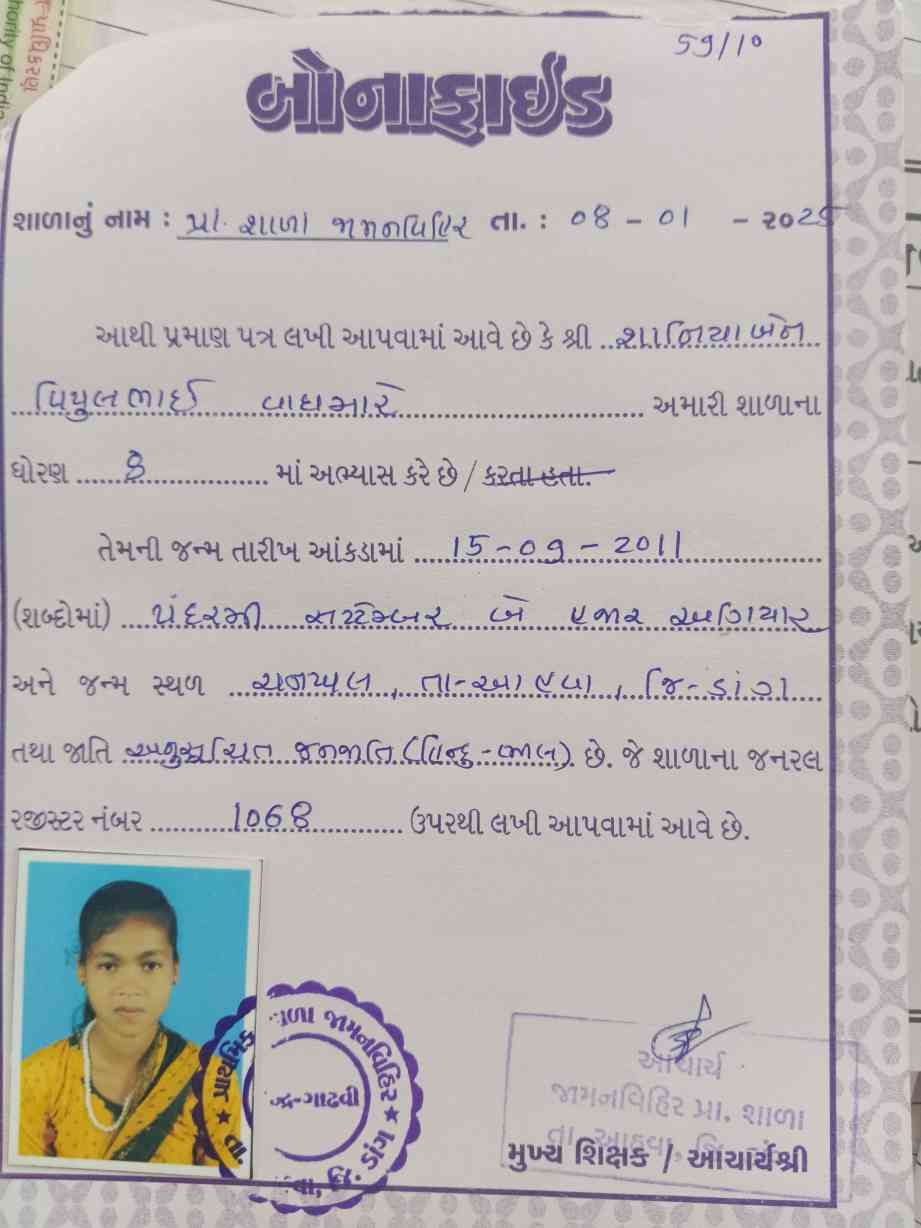 ન્યાધિકરણ
hority of India
59/10
બોનાફાઈડ
શાળાનું નામ : પ્રા. શાળા જામનવિહિર તા. : 08 - 01 - ૨૦25
આથી પ્રમાણ પત્ર લખી આપવામાં આવે છે કે શ્રી ..શાનિયાબેન
વિપુલભાઈ વાઘમારે અમારી શાળાના
ધોરણ 8 માં અભ્યાસ કરે છે / કરતા હતા.
તેમની જન્મ તારીખ આંકડામાં 15-09-2011
(શબ્દોમાં) પંદરમી સપ્ટેમ્બર બે હજાર અગિયાર
અને જન્મ સ્થળ તા-આહવા, જિ-ડાંગ
તથા જાતિ અનુસુચિત જનજાતિ (હિન્દુ-ભીલ) છે. જે શાળાના જનરલ
રજીસ્ટર નંબર 1068 ઉપરથી લખી આપવામાં આવે છે.
શાળા જામનવિહિર ★ જિ. ડાંગ
ગાઢવી
આચાર્ય
જામનવિહિર પ્રા. શાળા
તા. આહવા,
મુખ્ય શિક્ષક / આચાર્યશ્રી